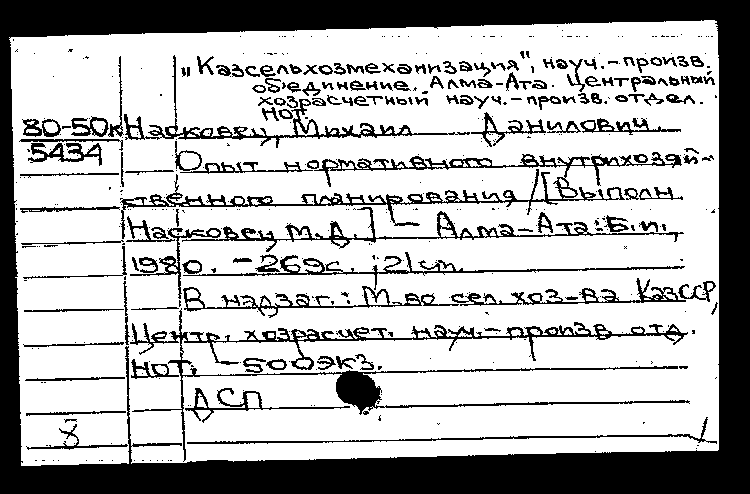 „Казсельхозмеханизация", науч.-произв.
объединение. Алма-Ата. Центральный
хозрасчетный науч.-произв. отдел.
НОТ.
80-50к Насковец, Михаил Данилович.
5434
Опыт нормативного внутрихозяй-
ственного планирования / [Выполн.
Насковец М.Д.] - Алма-Ата: Б.и.,
1980. - 269с. ; 21 см.
В надзаг.: М-во сел. хоз-ва КазССР,
Центр. хозрасчет. науч.-произв. отд.
НОТ. - 500экз.
ДСП
8